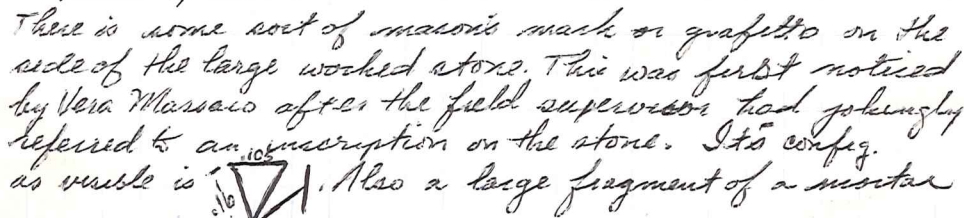 There is some sort of mason's mark or grafitto on the
side of the large worked stone. This was first noticed
by Vera Massaro after the field supervisor had jokingly
referred to an inscription on the stone. Its config.
as visible is .105 .16 . Also a large fragment of a mortar